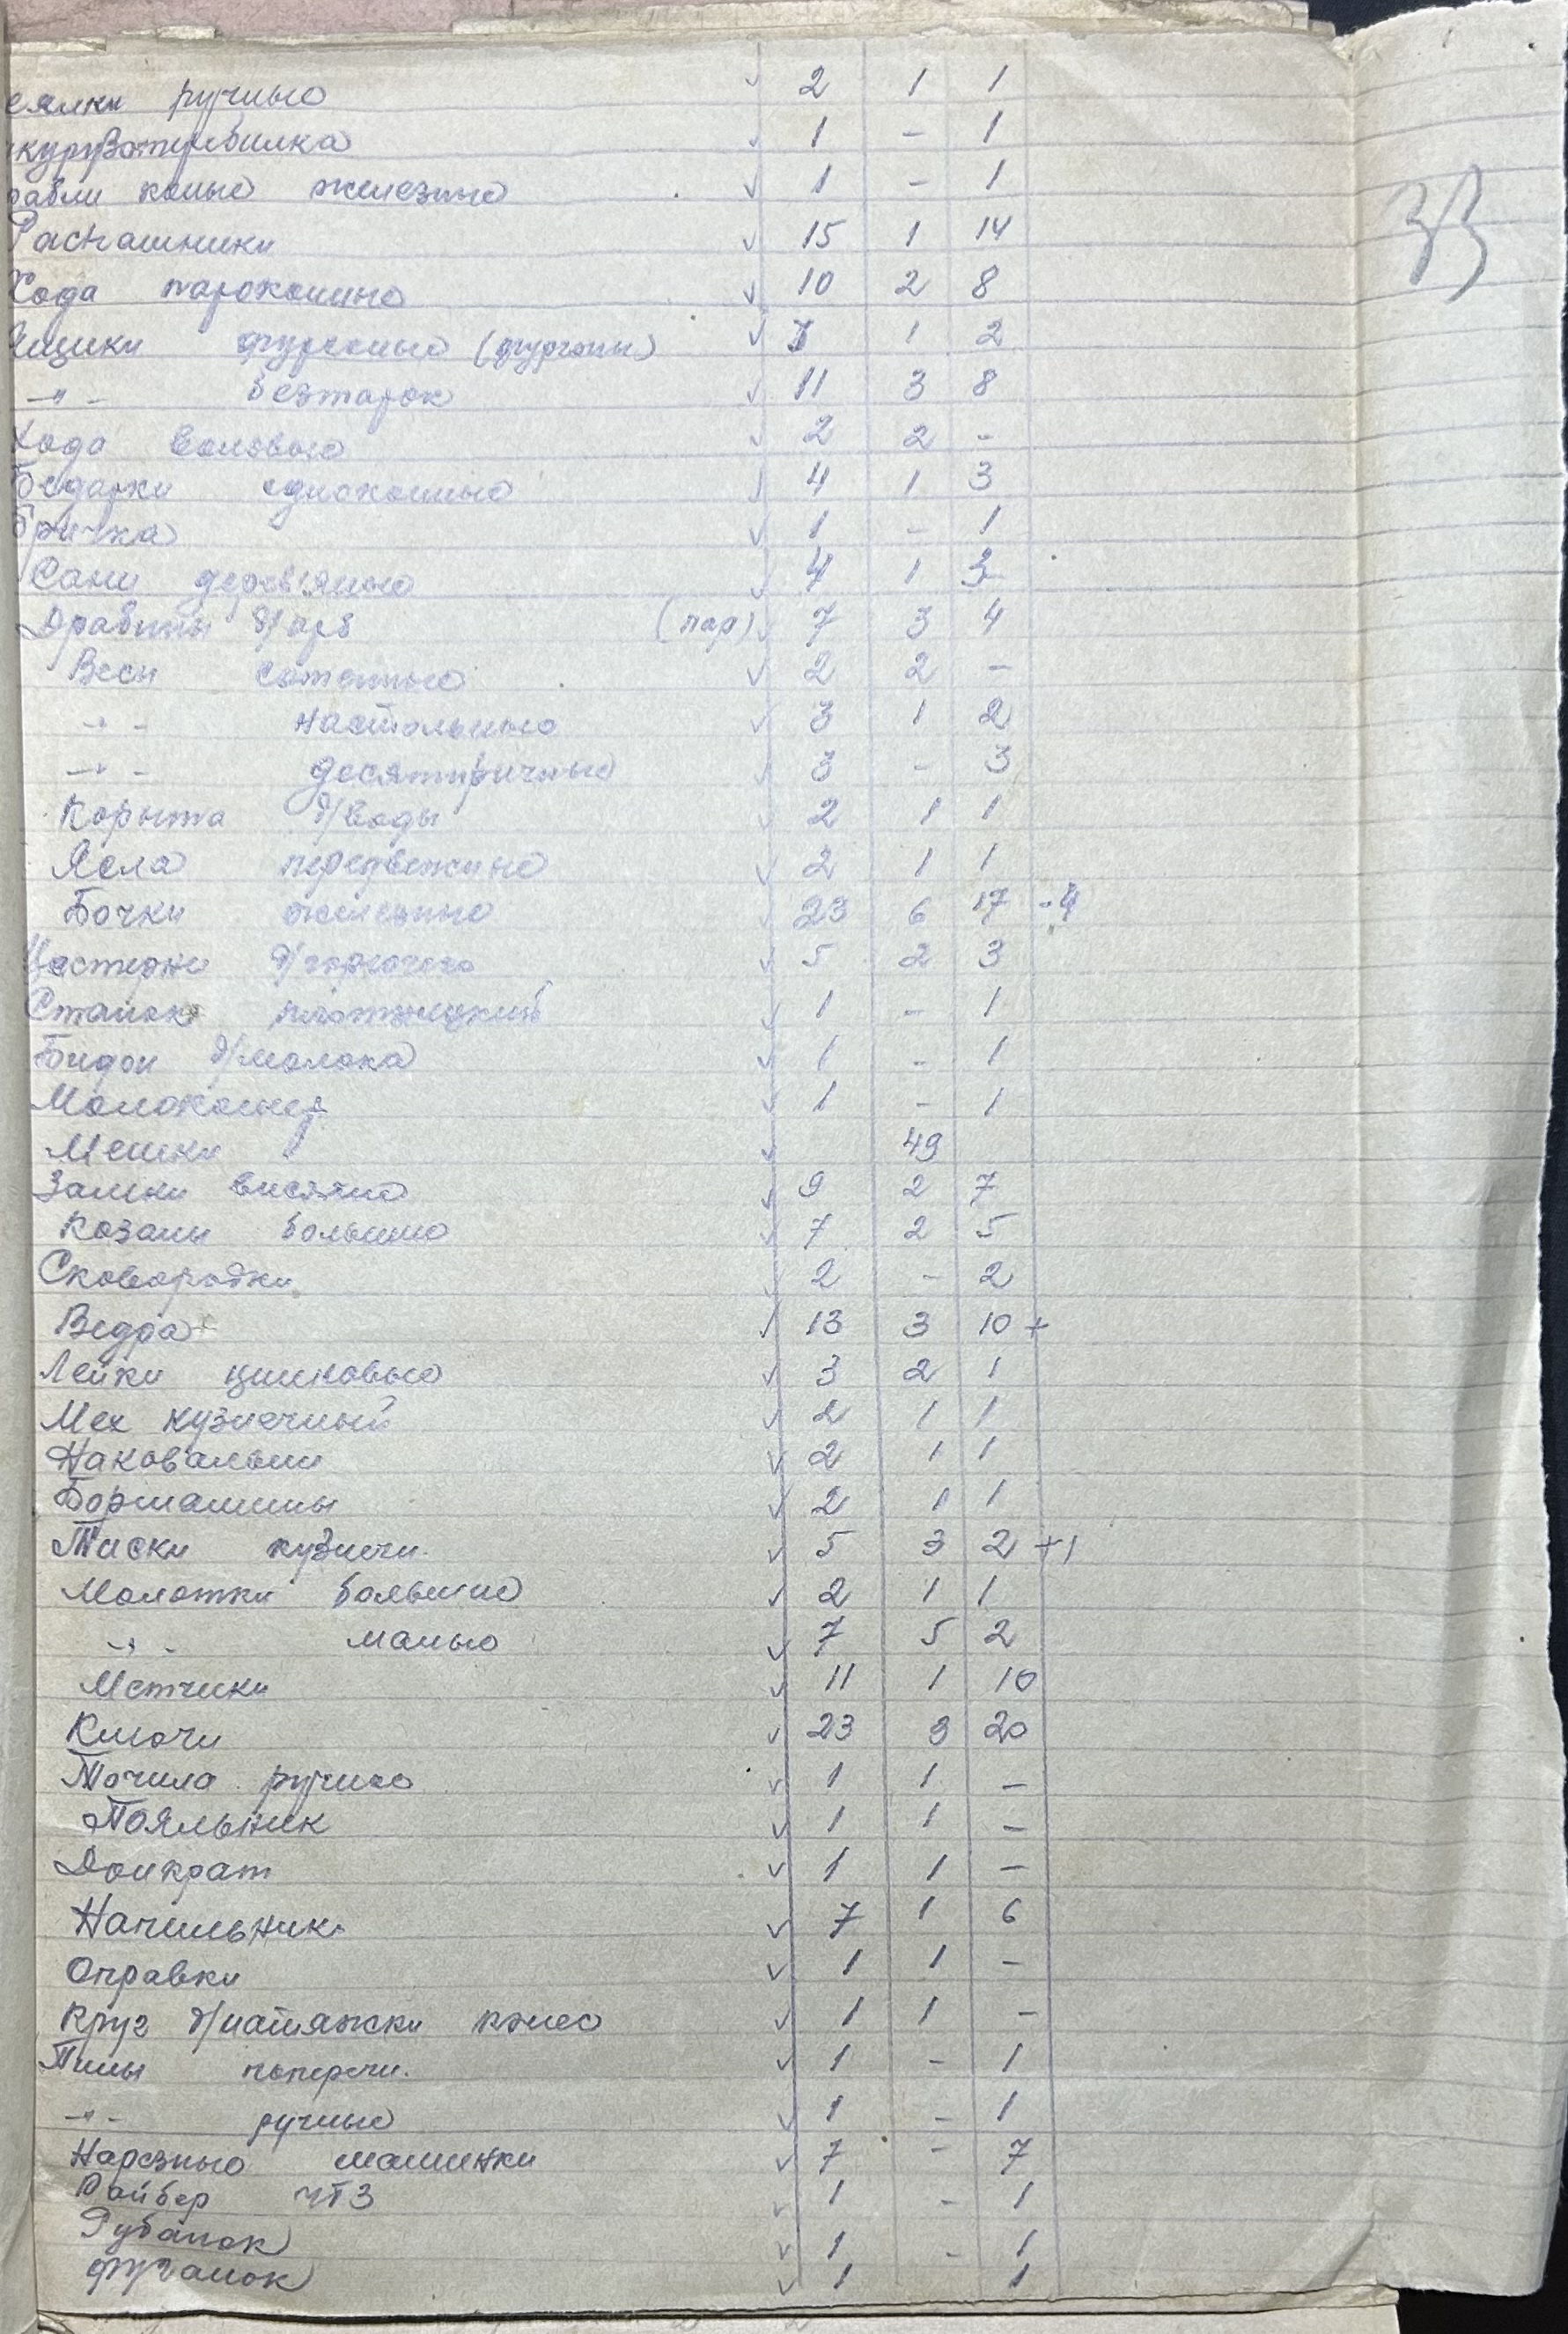 еялки ручные 2 1 1
кукурузотеребилка 1 - 1
рабли конные железные 1 - 1
33
Распашники 15 1 14
Хода пароконные 10 2 8
Ящики фургонные (фургоны) 3 1 2
-"- безтарок 11 3 8
Хода воловые 2 2 -
Бедарки одноконные 4 1 3
Бричка 1 - 1
Сани деревянные 4 1 3
Драбины д/арб (пар) 7 3 4
Весы сотенные 2 2 -
-"- настольные 3 1 2
-"- десятиричные 3 - 3
Корыта д/воды 2 1 1
Ясла передвижные 2 1 1
Бочки железные 23 6 17 -4
Цистерны д/горючего 5 2 3
Станок плотницкий 1 - 1
Бидон д/молока 1 - 1
Молокомер 1 - 1
Мешки 49
Замки висячие 9 2 7
Казаны большие 7 2 5
Сковородки 2 - 2
Ведра 13 3 10 +
Лейки цинковые 3 2 1
Мех кузнечный 2 1 1
Наковальни 2 1 1
Бормашины 2 1 1
Тиски кузнечн. 5 3 2 +1
Молотки большие 2 1 1
-"- малые 7 5 2
Метчики 11 1 10
Ключи 23 3 20
Точила ручные 1 1 -
Паяльник 1 1 -
Домкрат 1 1 -
Напильники 7 1 6
Оправки 1 1 -
Круг д/натяжки колес 1 1 -
Пилы поперечн. 1 - 1
-"- ручные 1 - 1
Нарезные машинки 7 - 7
Райбер ЧТЗ 1 - 1
Рубанок 1 - 1
фуганок 1 1